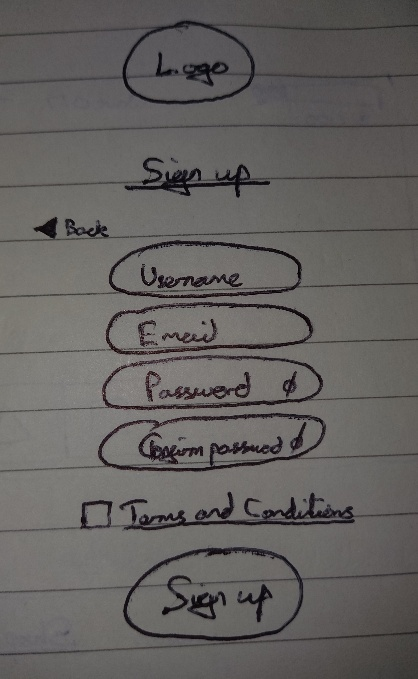 Logo
Sign up
Back
Username
Email
Password
Confirm password
Terms and Conditions
Sign up